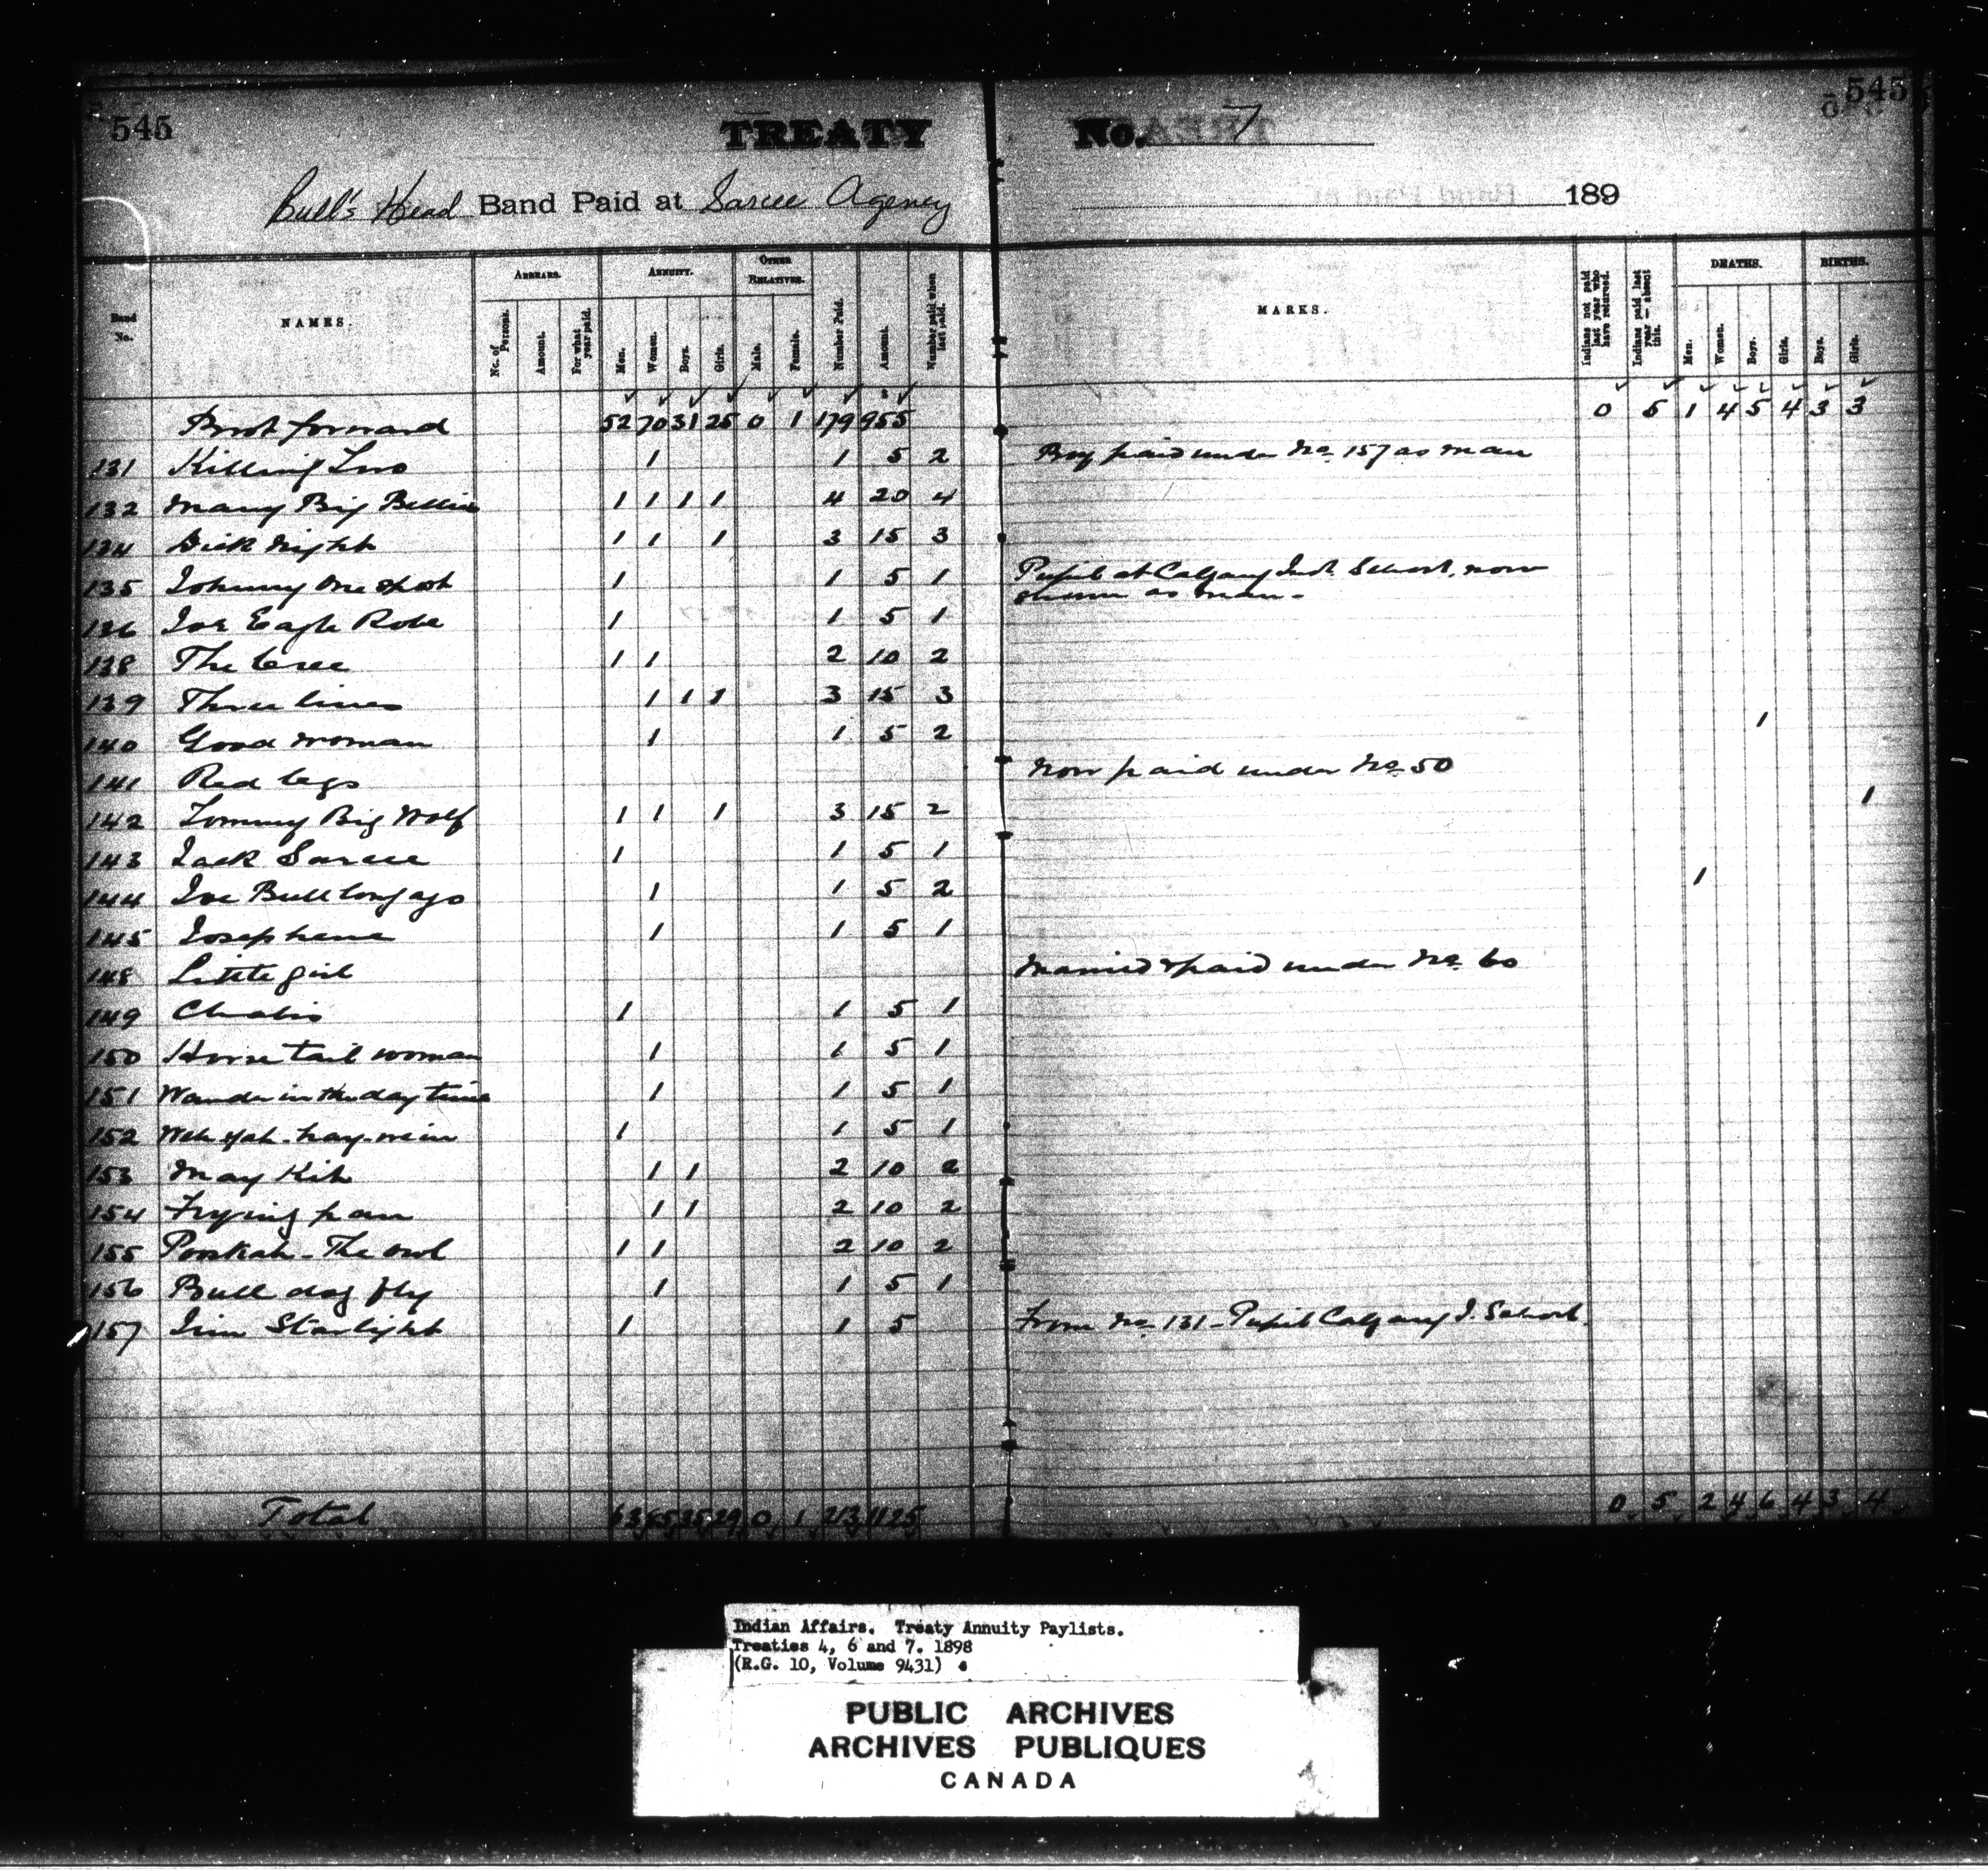 545
TREATY No. 7
545
Bull's Head Band Paid at Sarcee Agency 189
Band No. NAMES. ARREARS. No. of Persons. Amount. For what year paid. ANNUITY. Men. Women. Boys. Girls. OTHER RELATIVES. Male. Female. Number Paid. Amount. Number paid when last paid. MARKS. Indians not paid last year who have returned. Indians paid last year—absent this. DEATHS. Men. Women. Boys. Girls. BIRTHS. Boys. Girls.
Brot forward 52 70 31 25 0 1 179 955 0 5 1 4 5 4 3 3
131 Killing Two 1 1 5 2 Boy paid under No. 157 as man
132 Many Big Bellies 1 1 1 1 4 20 4
134 Dick Night 1 1 1 3 15 3
135 Johnny One Spot 1 1 5 1 Pupil at Calgary Ind. School, now
shown as man-
136 Joe Eagle Robe 1 1 5 1
138 The Cree 1 1 2 10 2
139 Three lines 1 1 1 3 15 3
140 Good woman 1 1 5 2 1
141 Red legs Now paid under No. 50
142 Tommy Big Wolf 1 1 1 3 15 2 1
143 Jack Sarcee 1 1 5 1
144 Joe Bull long ago 1 1 5 2 1
145 Josephene 1 1 5 1
148 Little girl Married & paid under No. 60
149 1 1 5 1
150 Horse tail woman 1 1 5 1
151 Wander in the day time 1 1 5 1
152 1 1 5 1
153 May Kih 1 1 2 10 2
154 Frying pan 1 1 2 10 2
155 Pooskah - The owl 1 1 2 10 2
156 Bull dog fly 1 1 5 1
157 Jim Starlight 1 1 5 From No. 131 - Pupil Calgary I. School.
Total 63 85 35 29 0 1 213 1125 0 5 2 4 6 4 3 4
Indian Affairs. Treaty Annuity Paylists.
Treaties 4, 6 and 7. 1898
(R.G. 10, Volume 9431)
PUBLIC ARCHIVES
ARCHIVES PUBLIQUES
CANADA